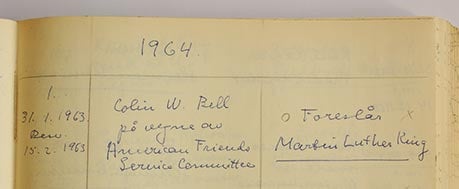 1964.
1.
31. 1. 1963
Rew.
15. 2. 1963
Colin W. Bell
på vegne av
American Friends
Service Committee
o Foreslår x
Martin Luther King